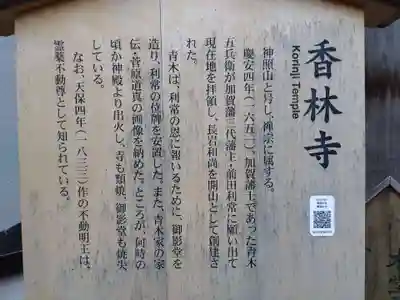 香林寺
Korinji Temple
神照山と号し、禅宗に属する。
慶安四年(一六五一)加賀藩士であった青木
五兵衛が加賀藩三代藩主・前田利常に願い出て
現在地を拝領し、長岩和尚を開山として創建さ
れた。
青木は、利常の恩に報いるために、御影堂を
造り、利常の位牌を安置した。また、青木家の家
伝・菅原道真の画像を納めた。ところが、何時の
頃か神殿より出火し、寺も類焼、御影堂も焼失
している。
なお、天保四年(一八三三)作の不動明王は、
霊薬不動尊として知られている。